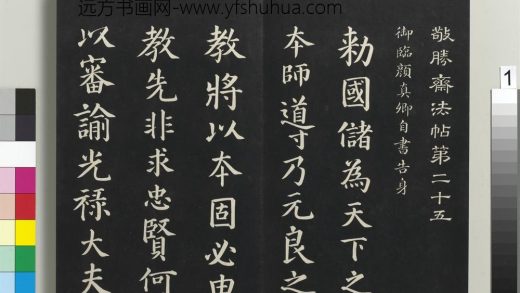 远方书画网-www.yfshuhua.com
敬勝齋法帖第二十五
御臨顔真卿自書告身
勅國儲為天下之
本師導乃元良之
教將以本固必由
教先非求忠賢何
以審諭光祿大夫
1